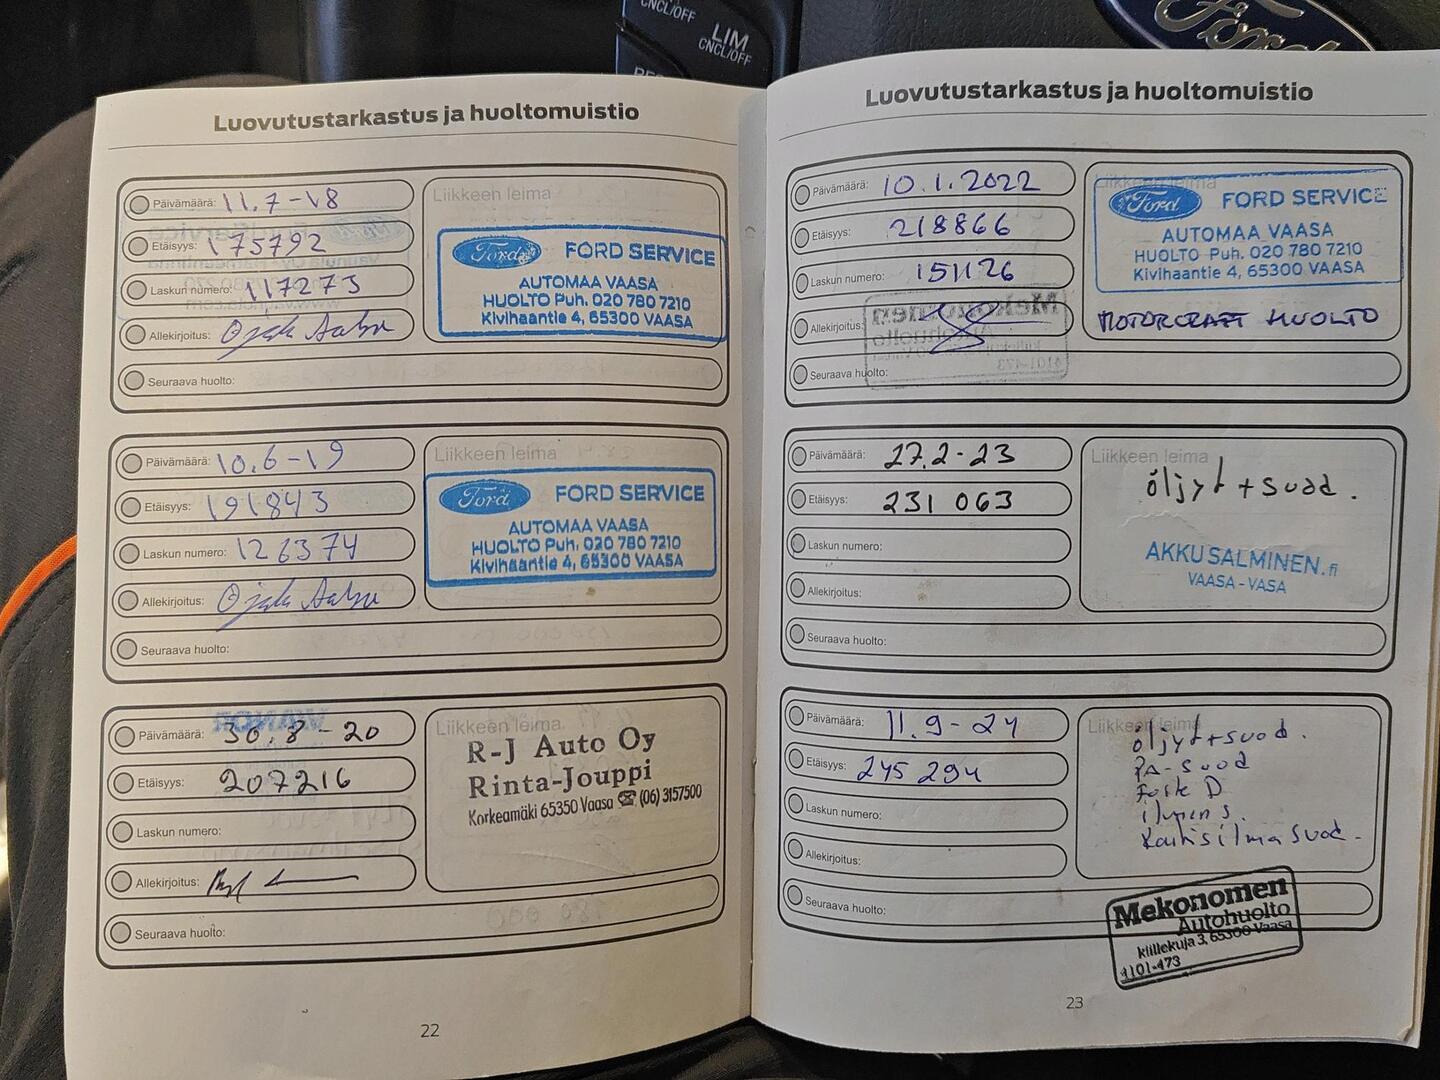 CNCL/OFF
LIM
CNCL/OFF
Ford
Luovutustarkastus ja huoltomuistio
Päivämäärä: 11.7-18
Etäisyys: 175792
Laskun numero: 117273
Allekirjoitus:
Seuraava huolto:
Liikkeen leima
Ford FORD SERVICE
AUTOMAA VAASA
HUOLTO Puh. 020 780 7210
Kivihaantie 4, 65300 VAASA
Päivämäärä: 10.6-19
Etäisyys: 191843
Laskun numero: 126374
Allekirjoitus:
Seuraava huolto:
Liikkeen leima
Ford FORD SERVICE
AUTOMAA VAASA
HUOLTO Puh. 020 780 7210
Kivihaantie 4, 65300 VAASA
Päivämäärä: 30.8-20
Etäisyys: 207216
Laskun numero:
Allekirjoitus:
Seuraava huolto:
Liikkeen leima
R-J Auto Oy
Rinta-Jouppi
Korkeamäki 65350 Vaasa ☎ (06) 3157500
22
Luovutustarkastus ja huoltomuistio
Päivämäärä: 10.1.2022
Etäisyys: 218866
Laskun numero: 151126
Allekirjoitus:
Seuraava huolto:
Liikkeen leima
Ford FORD SERVICE
AUTOMAA VAASA
HUOLTO Puh. 020 780 7210
Kivihaantie 4, 65300 VAASA
MOTORCRAFT HUOLTO
Päivämäärä: 27.2-23
Etäisyys: 231 063
Laskun numero:
Allekirjoitus:
Seuraava huolto:
Liikkeen leima
öljyt + suod.
AKKUSALMINEN.fi
VAASA - VASA
Päivämäärä: 11.9-24
Etäisyys: 245 294
Laskun numero:
Allekirjoitus:
Seuraava huolto:
Liikkeen leima
öljyt + suod.
PA-suod
D
Raitisilmasuod.
Mekonomen
Autohuolto
kiillekuja 3, 65300 Vaasa
4101-473
23